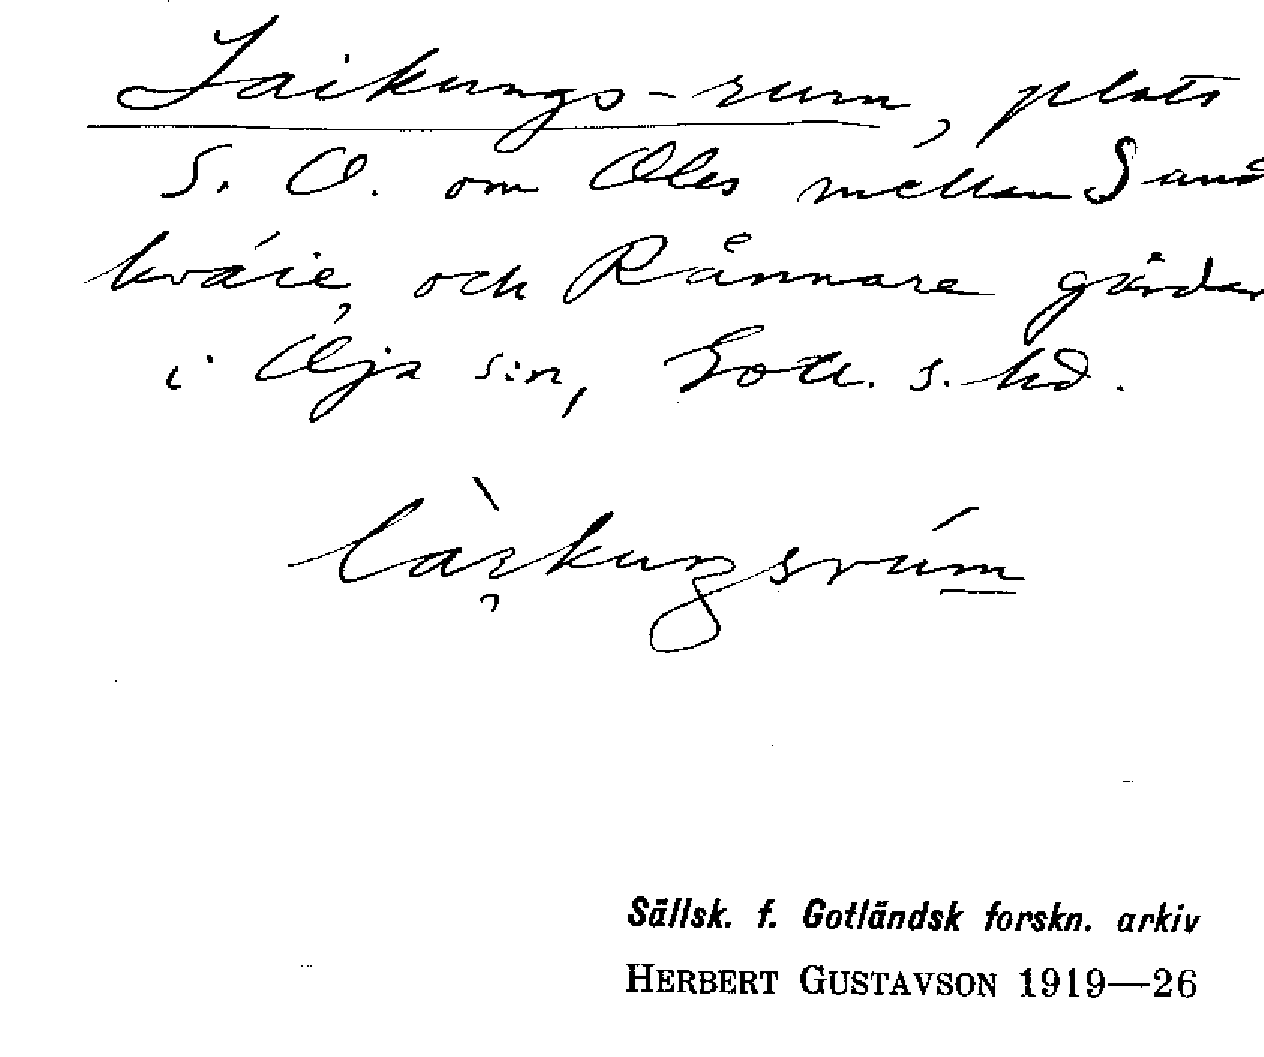 Laikungs-rum, plats
S. O. om Oles mellan Sand
kväie, och Rånnare gårdar
i Öja s:n, Gotl. s. hd.
làɛ̯kuŋsrúm
Sällsk. f. Gotländsk forskn. arkiv
HERBERT GUSTAVSON 1919—26